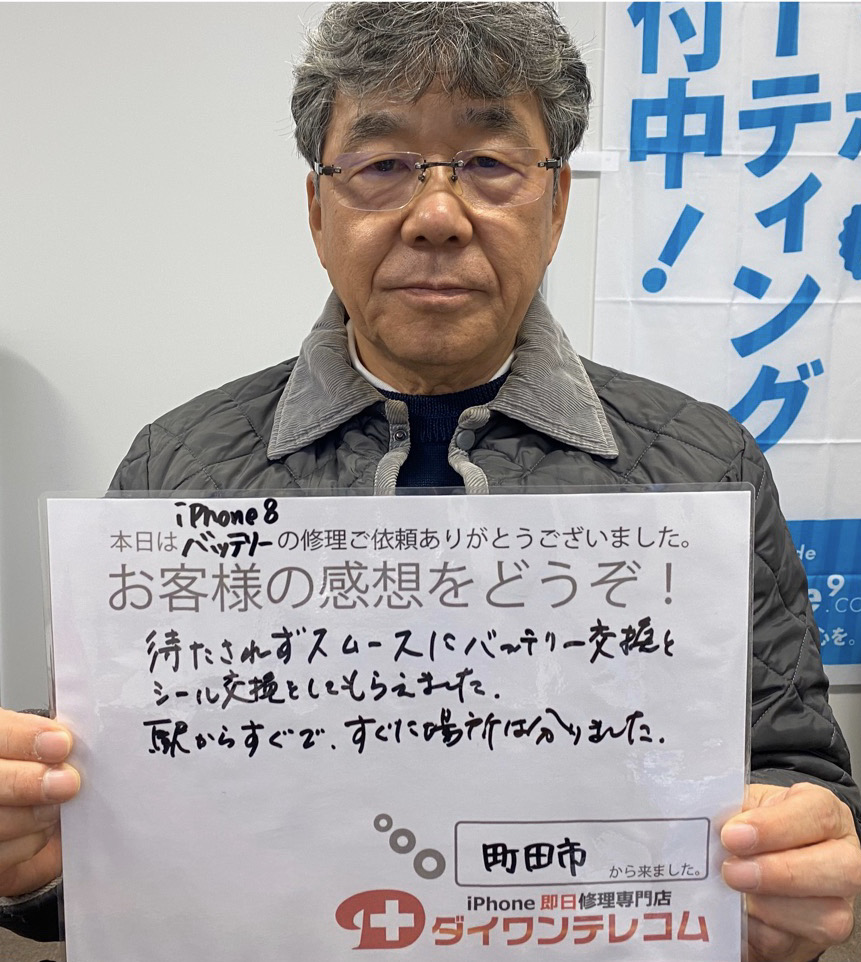 付中!
ーティング
iPhone8
本日はバッテリーの修理ご依頼ありがとうございました。
お客様の感想をどうぞ!
待たされずスムースにバッテリー交換と
シール交換をしてもらえました.
駅からすぐで、すぐに場所は分りました.
町田市
から来ました。
iPhone 即日修理専門店
ダイワンテレコム